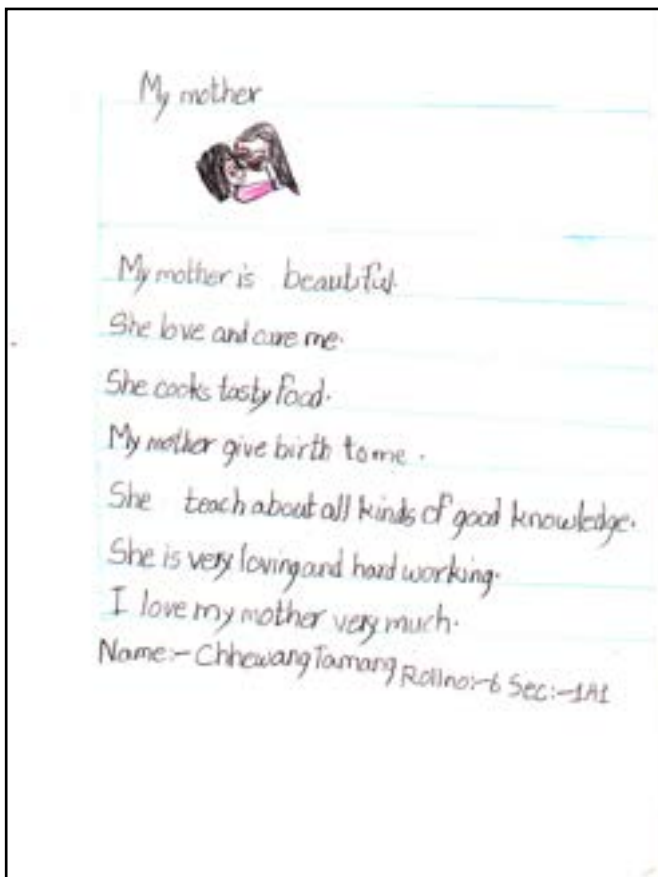 My mother
My mother is beautiful.
She love and care me.
She cooks tasty food.
My mother give birth to me.
She teach about all kinds of good knowledge.
She is very loving and hard working.
I love my mother very much.
Name:- Chhewang Tamang Rollno:-6 Sec:-1A1